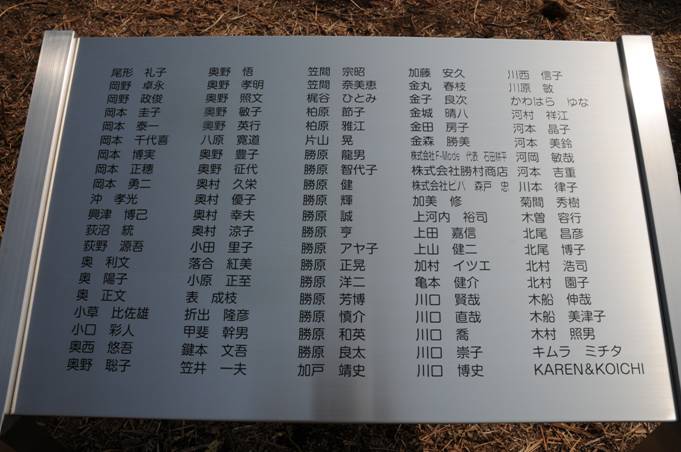 尾形 礼子
岡野 卓永
岡野 政俊
岡本 圭子
岡本 泰一
岡本 千代喜
岡本 博実
岡本 正穂
岡本 勇二
沖 孝光
興津 博己
荻沼 統
荻野 源吾
奥 利文
奥 陽子
奥 正文
小草 比佐雄
小口 彩人
奥西 悠吾
奥野 聡子
奥野 悟
奥野 孝明
奥野 照文
奥野 敏子
奥野 英行
八原 寛道
奥野 豊子
奥野 征代
奥村 久栄
奥村 優子
奥村 幸夫
奥村 涼子
小田 里子
落合 紅美
小原 正至
表 成枝
折出 隆彦
甲斐 幹男
鍵本 文吾
笠井 一夫
笠間 宗昭
笠間 奈美恵
梶谷 ひとみ
柏原 節子
柏原 雅江
片山 晃
勝原 龍男
勝原 智代子
勝原 健
勝原 輝
勝原 誠
勝原 亨
勝原 アヤ子
勝原 正晃
勝原 洋二
勝原 芳博
勝原 慎介
勝原 和英
勝原 良太
加戸 靖史
加藤 安久
金丸 春枝
金子 良次
金城 晴八
金田 房子
金森 勝美
株式会社F-Mode 代表 石田耕平
株式会社勝村商店
株式会社ビハ 森戸 忠
加美 修
上河内 裕司
上田 嘉信
上山 健二
加村 イツエ
亀本 健介
川口 賢哉
川口 直哉
川口 喬
川口 崇子
川口 博史
川西 信子
川原 敏
かわはら ゆな
河村 祥江
河本 晶子
河本 美鈴
河岡 敏哉
河本 吉重
川本 律子
菊間 秀樹
木曽 容行
北尾 昌彦
北尾 博子
北村 浩司
北村 園子
木船 伸哉
木船 美津子
木村 照男
キムラ ミチタ
KAREN&KOICHI